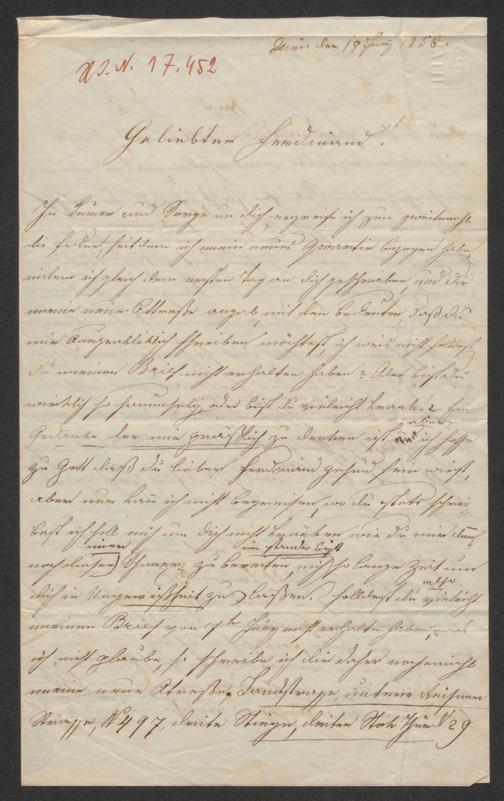 Wien den 18 Juny 1856.
H.I.N. 17.452
Geliebter Ferdinand!
In Kumer und Sorge um dich ergreife ich zum zweitenmahl
die Feder, seitdem ich mein neues Quartir bezogen habe,
indem ich gleich den ersten Tag an dich geschrieben und dir
meine neue Attreße angab, mit den bedeuten daß du
mir Augenbliklich schreiben möchtest, ich weis nicht solltest
du meinen Brief nicht erhalten haben? Oder bist du
wirklich so saumselig, oder bist du vieleicht krank? Ein
Gedanke der mir gräßlich zu denken ist aber ich hoffe
zu Gott daß du lieber Ferdinand gesund sein wirst,
aber nun kan ich nicht begreifen, wo du stets schrei
best ich soll mich um dich nicht kränken wie du mir dan
noch diesen Schmerz zu bereiten im stande bist mich so lange Zeit um
dich in Ungewißheit zu laßen. Solltest du also vieleicht
meinen Brief von 7ten Juny nicht erhalten haben, was
ich nicht glaube, so schreibe ich dir daher nocheinmahl
meine neue Attreße. Landstrasse, untere
Strasse, No 497, dritte Stiege, dritter Stok Thür No 29